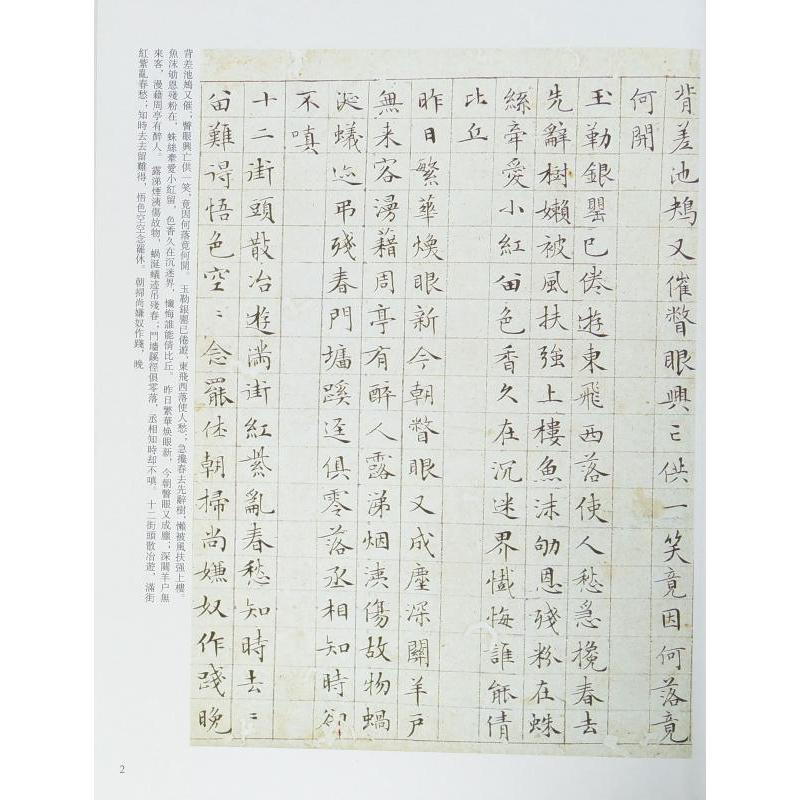 背差池鴂又催瞥眼興亡供一笑竟因何落竟
何開
玉勒銀罌已倦遊東飛西落使人愁急攙春去
先辭樹嬾被風扶強上樓魚沫吻恩殘粉在蛛
絲牽愛小紅留色香久在沉迷界懺悔誰能倩
比丘
昨日繁華煥眼新今朝瞥眼又成塵深關羊戶
無来客漫藉周亭有醉人露涕烟洟傷故物蝸
涎蟻迹弔殘春門墻蹊逕俱零落丞相知時卻
不嗔
十二街頭散冶遊滿街紅紫亂春愁知時去〻
留難得悟色空〻念罷休朝掃尚嫌奴作踐晚
背差池鴂又催；瞥眼興亡供一笑，竟因何落竟何開。 玉勒銀罌已倦遊，東飛西落使人愁；急攙春去先辭樹，懶被風扶强上樓。
魚沫吻恩殘粉在，蛛絲牽愛小紅留，色香久在沉迷界，懺悔誰能倩比丘。 昨日繁華焕眼新，今朝瞥眼又成塵；深關羊户無
來客，漫藉周亭有醉人。 露涕煙洟傷故物，蝸涎蟻迹吊殘春；門墻蹊徑俱零落，丞相知時却不嗔。 十二街頭散冶遊，滿街
紅紫亂春愁；知時去去留難得，悟色空空念罷休。 朝掃尚嫌奴作踐，晚
2